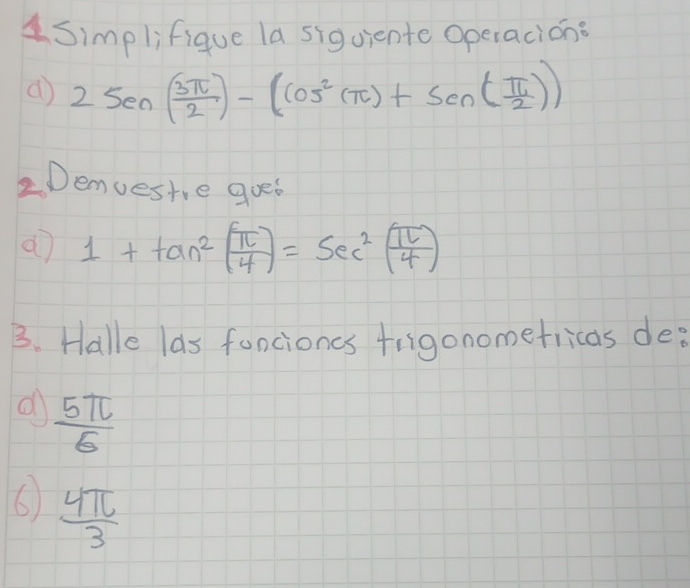 1 Simplifique la siguiente Operación:
a) 2 Sen (3π/2) - (cos² (π) + Sen (π/2))
2. Demuestre que:
a) 1 + tan² (π/4) = Sec² (π/4)
3. Halle las funciones trigonometricas de:
a) 5π/6
b) 4π/3